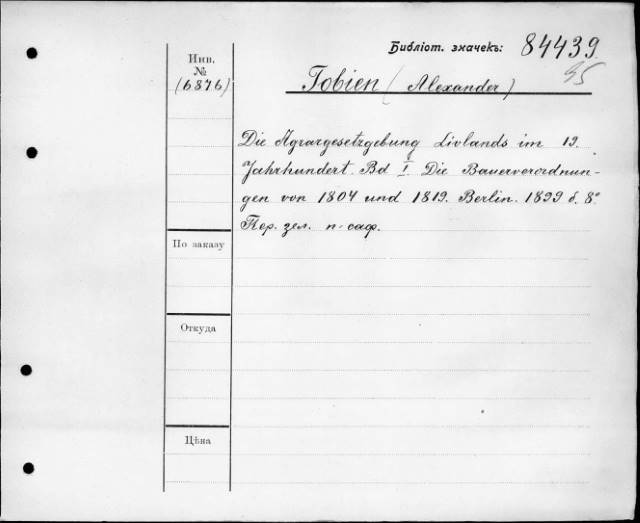 Библіот. значекъ: 84439.
95
Инв.
№
(6876)
Tobien (Alexander)
Die Agrargesetzgebung Livlands im 19.
Jahrhundert. Bd I. Die Bauerverordnun-
gen von 1804 und 1819. Berlin. 1899 d. 8°
Кор. зел. п-саф.
По заказу
Откуда
Цѣна